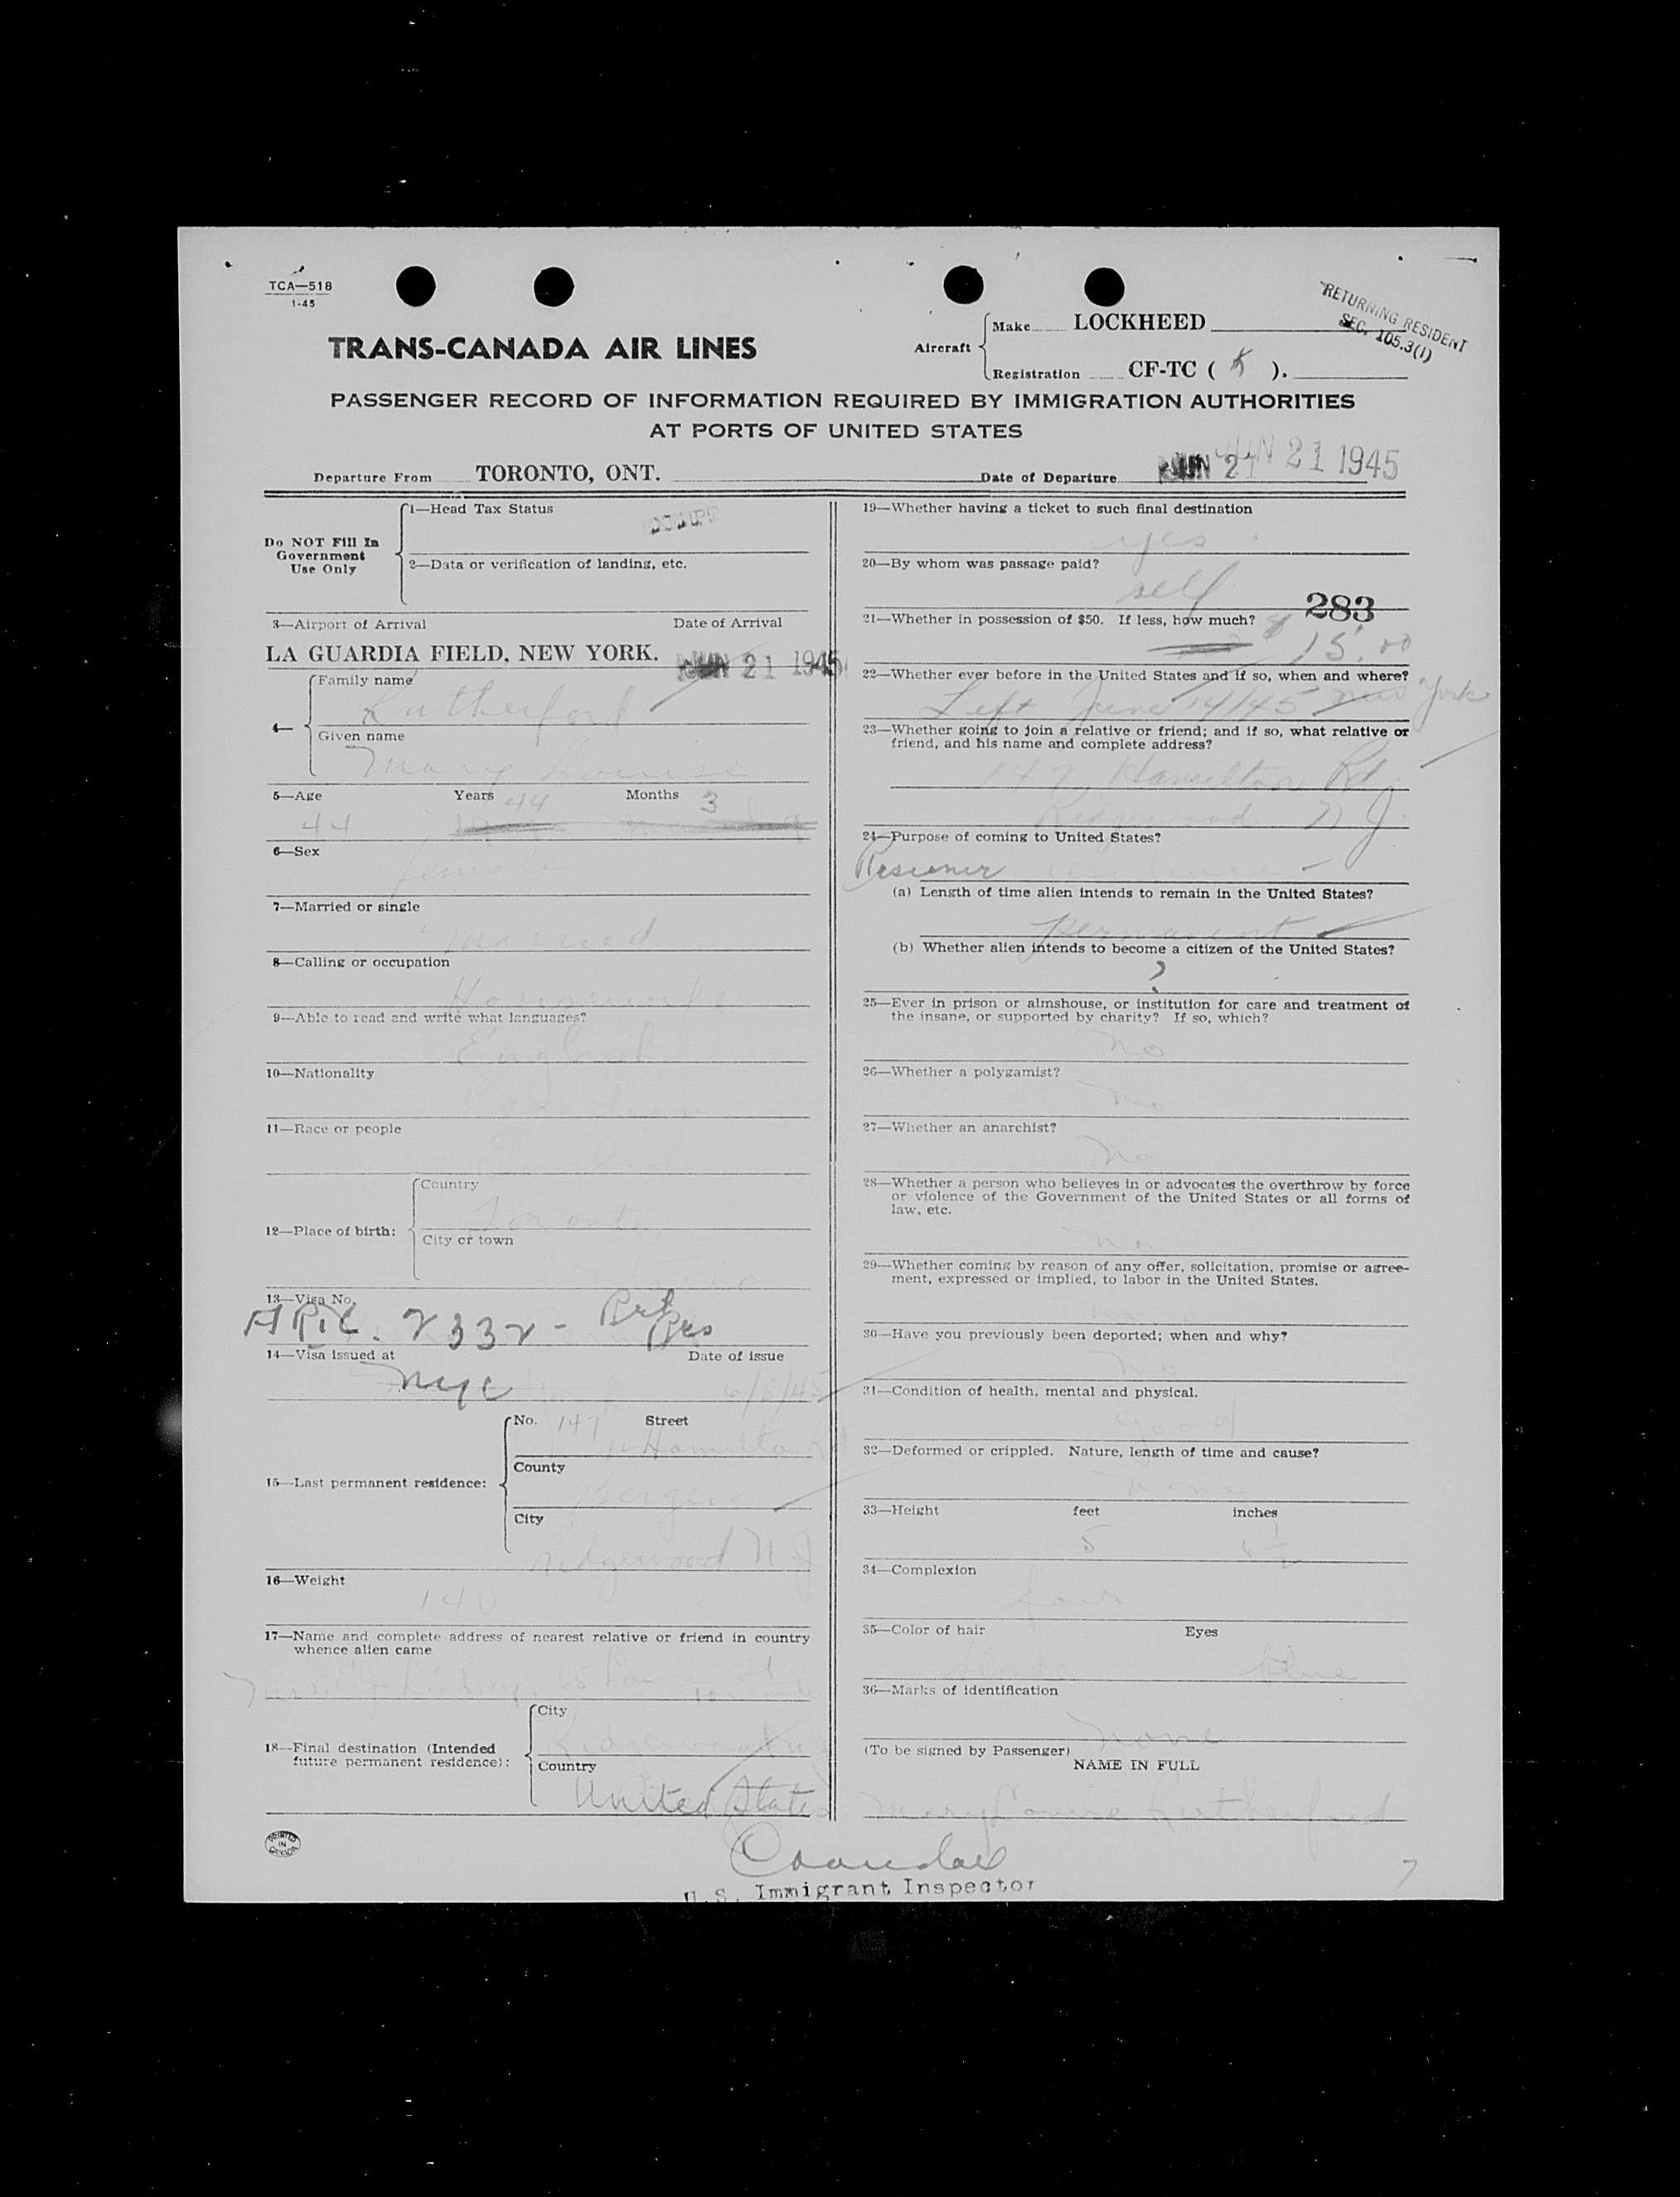 TCA—518
1-45
RETURNING RESIDENT
SEC. 105.3(1)
TRANS-CANADA AIR LINES
Aircraft
Make LOCKHEED
Registration CF-TC ( K ).
PASSENGER RECORD OF INFORMATION REQUIRED BY IMMIGRATION AUTHORITIES
AT PORTS OF UNITED STATES
Departure From TORONTO, ONT.
Date of Departure JUN 21 JUN 21 1945
Do NOT Fill In
Government
Use Only
1—Head Tax Status
2—Data or verification of landing, etc.
3—Airport of Arrival Date of Arrival
LA GUARDIA FIELD, NEW YORK. JUN 21 1945
4—
Family name
Rutherford
Given name
Mary Louise
5—Age Years 44 Months 3
44
6—Sex
female
7—Married or single
Married
8—Calling or occupation
Housewife
9—Able to read and write what languages?
English
10—Nationality
11—Race or people
12—Place of birth:
Country
Toronto
City or town
13—Visa No.
2332 -
14—Visa issued at Date of issue
NYC 6/5/45
15—Last permanent residence:
No. 147 Street
Hamilton Rd
County
Bergen
City
Ridgewood N.J
16—Weight
140
17—Name and complete address of nearest relative or friend in country
whence alien came
18—Final destination (Intended
future permanent residence):
City
Ridgewood N J
Country
United States
19—Whether having a ticket to such final destination
yes
20—By whom was passage paid?
self
283
21—Whether in possession of $50. If less, how much?
$ 15.00
22—Whether ever before in the United States and if so, when and where?
Left June 14/45 New York
23—Whether going to join a relative or friend; and if so, what relative or
friend, and his name and complete address?
147 Hamilton Rd.
Ridgewood N J.
24—Purpose of coming to United States?
residence
(a) Length of time alien intends to remain in the United States?
Permanent
(b) Whether alien intends to become a citizen of the United States?
?
25—Ever in prison or almshouse, or institution for care and treatment of
the insane, or supported by charity? If so, which?
no
26—Whether a polygamist?
no
27—Whether an anarchist?
no
28—Whether a person who believes in or advocates the overthrow by force
or violence of the Government of the United States or all forms of
law, etc.
no
29—Whether coming by reason of any offer, solicitation, promise or agree-
ment, expressed or implied, to labor in the United States.
30—Have you previously been deported; when and why?
no
31—Condition of health, mental and physical.
good
32—Deformed or crippled. Nature, length of time and cause?
none
33—Height feet inches
5
34—Complexion
fair
35—Color of hair Eyes
blue
36—Marks of identification
none
(To be signed by Passenger)
NAME IN FULL
Mary Louise Rutherford
PRINTED
IN
CANADA
U. S. Immigrant Inspector
7